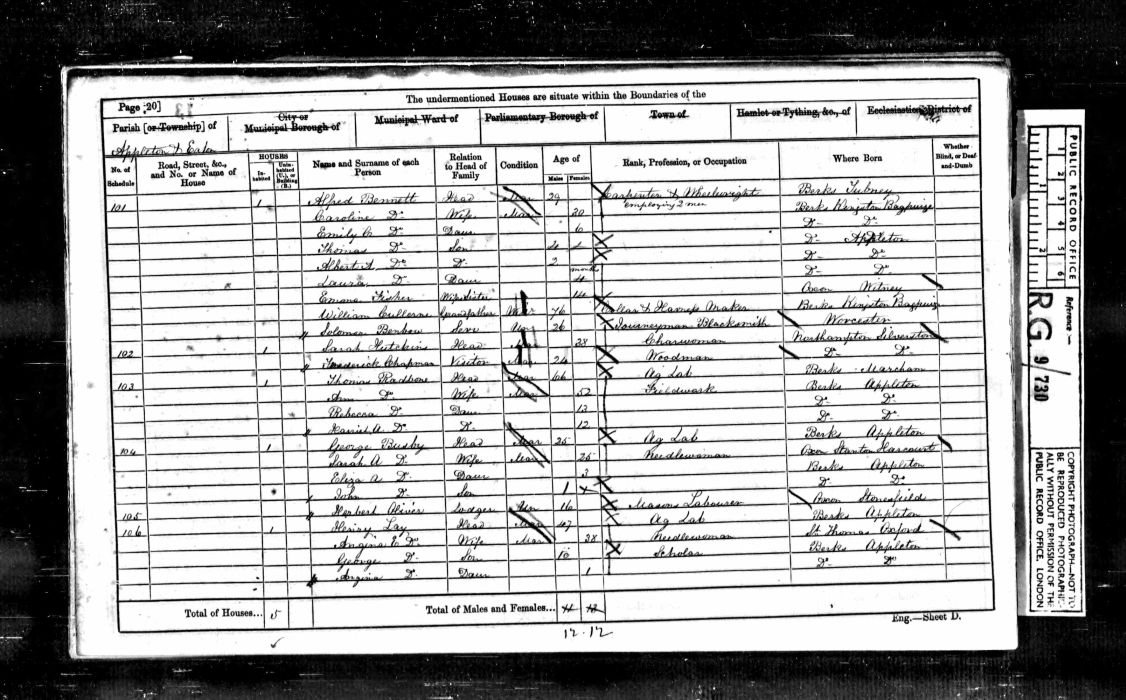 The undermentioned Houses are situate within the Boundaries of the
Page 20]
Parish [or Township] of
City or Municipal Borough of
Municipal Ward of
Parliamentary Borough of
Town of
Hamlet or Tything, &c., of
Ecclesiastical District of
Appleton & Eaton
No. of Schedule
Road, Street, &c., and No. or Name of House
HOUSES
Inhabited
Uninhabited (U.), or Building (B.)
Name and Surname of each Person
Relation to Head of Family
Condition
Age of
Males
Females
Rank, Profession, or Occupation
Where Born
Whether Blind, or Deaf-and-Dumb
101 1 Alfred Bennett Head Mar 29 Carpenter & Wheelwright Berks Tubney
employing 2 men
Caroline Do Wife Mar 30 Berks Kingston Bagpuize
Emily Do Daur 6 Do Do
Thomas Do Son 4 Do Appleton
Albert A. Do Do 2 Do Do
months
Laura Do Daur 4 Do Do
Emma Fisher Wife Sister 14 Oxon Witney
William Cullerne Grandfather 76 Collar & Harness Maker Berks Kingston Bagpuize
Solomon Benbow Serv Un 26 Journeyman Blacksmith Worcester
102 1 Sarah Hutchins Head 38 Charwoman Northampton Silverston
Frederick Chapman Visitor Mar 24 Woodman Do Do
103 1 Thomas Radbone Head Mar 66 Ag Lab Berks Marcham
Ann Do Wife Mar 52 Fieldwork Berks Appleton
Rebecca Do Daur 13 Do Do
Harriet A. Do Do 12 Do Do
104 1 George Busby Head Mar 25 Ag Lab Berks Appleton
Sarah A Do Wife Mar 25 Needlewoman Oxon Stanton Harcourt
Eliza A Do Daur 3 Berks Appleton
John Do Son 1 Do Do
105 Herbert Oliver Lodger Un 16 Masons Labourer Oxon Stonesfield
106 1 Henry Lay Head Mar 47 Ag Lab Berks Appleton
Angina E Do Wife Mar 38 Needlewoman St Thomas Oxford
George Do Son 10 Scholar Berks Appleton
Angina Do Daur 1 Do Do
Total of Houses... 5
Total of Males and Females...
12 . 12
Eng.—Sheet D.
PUBLIC RECORD OFFICE
1 2 3 4 5 6
1 2
Reference :-
RG 9/730
COPYRIGHT PHOTOGRAPH—NOT TO BE REPRODUCED PHOTOGRAPHICALLY WITHOUT PERMISSION OF THE PUBLIC RECORD OFFICE, LONDON